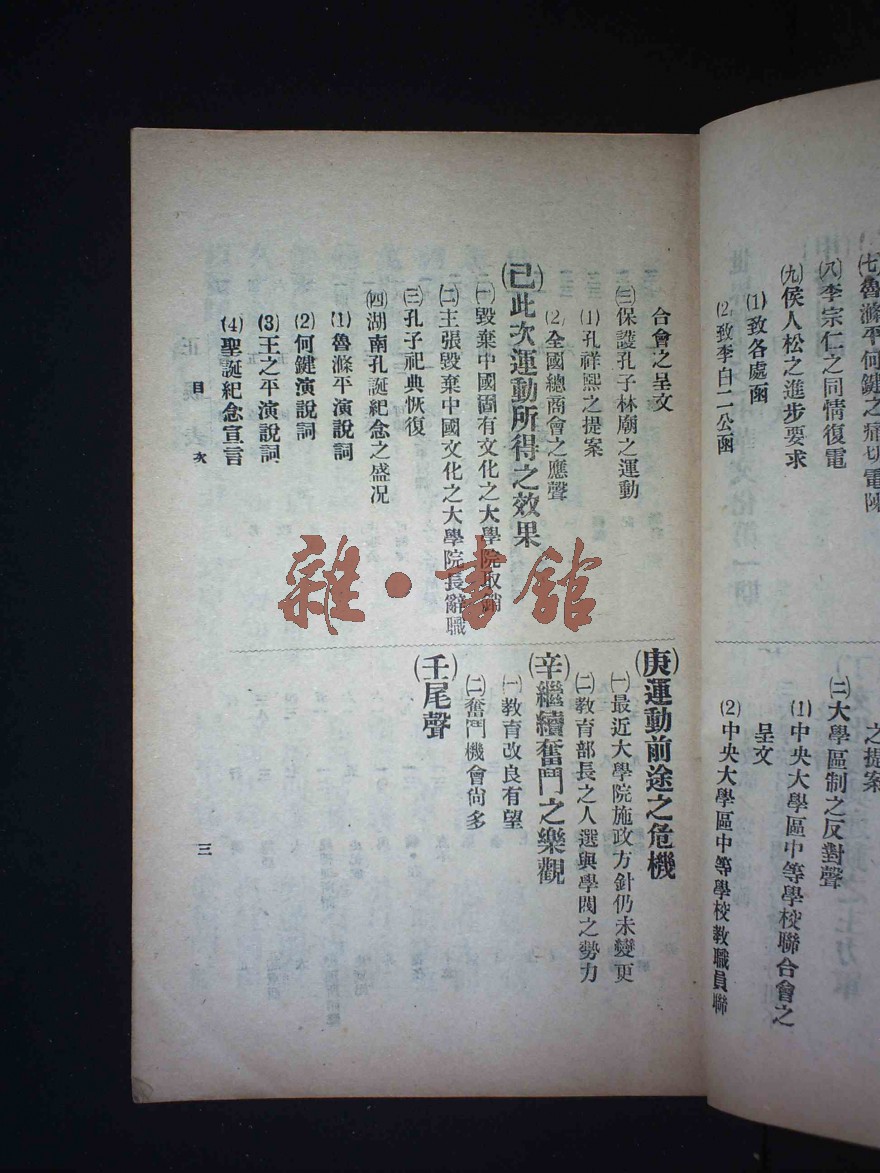 (七)魯滌平何鍵之痛切電陳
(八)李宗仁之同情復電
(九)侯人松之進步要求
(1)致各處函
(2)致李白二公函
之提案
(二)大學區制之反對聲
(1)中央大學區中等學校聯合會之
呈文
(2)中央大學區中等學校教職員聯
合會之呈文
(三)保護孔子林廟之運動
(1)孔祥熙之提案
(2)全國總商會之應聲
(己)此次運動所得之效果
(一)毀棄中國固有文化之大學院取銷
(二)主張毀棄中國文化之大學院長辭職
(三)孔子祀典恢復
(四)湖南孔誕紀念之盛况
(1)魯滌平演說詞
(2)何鍵演說詞
(3)王之平演說詞
(4)聖誕紀念宣言
(庚)運動前途之危機
(一)最近大學院施政方針仍未變更
(二)教育部長之人選與學閥之勢力
(辛)繼續奮鬥之樂觀
(一)教育改良有望
(二)奮鬥機會尙多
(壬)尾聲
目次
三
雜·書館